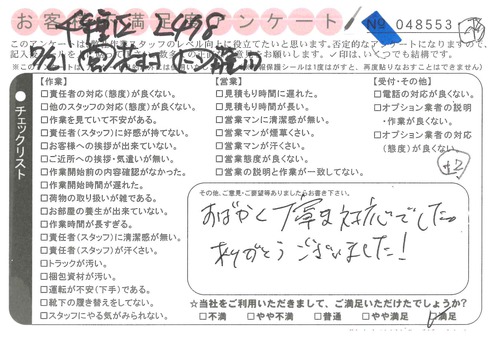 お客様満足アンケート! No 048553
【作業】
□責任者の対応(態度)が良くない。
□他のスタッフの対応(態度)が良くない。
□作業を見ていて不安がある。
□責任者(スタッフ)に好感が持てない。
□お客様への挨拶が出来ていない。
□ご近所への挨拶・気遣いが無い。
□作業開始前の内容確認がなかった。
□作業開始時間が遅れた。
□荷物の取り扱いが雑である。
□お部屋の養生が出来ていない。
□作業時間が長すぎる。
□責任者(スタッフ)に清潔感が無い。
□責任者(スタッフ)が汗くさい。
□トラックが汚い。
□梱包資材が汚い。
□運転が不安(下手)である。
□靴下の履き替えをしてない。
□スタッフにやる気がみられない。
チェックリスト
【営業】
□見積もり時間に遅れた。
□見積もり時間が長い。
□営業マンに清潔感が無い。
□営業マンが煙草くさい。
□営業マンが汗くさい。
□営業態度が良くない。
□営業の説明と作業が一致してない。
【受付・その他】
□電話の対応が良くない。
□オプション業者の説明・作業が良くない。
□オプション業者の対応(態度)が良くない。
その他、ご意見・ご要望等ありましたらお書き下さい。
対応でした
ありがとうございました!
☆当社をご利用いただきまして、ご満足いただけたでしょうか?
□不満 □やや不満 □普通 □やや満足 □満足